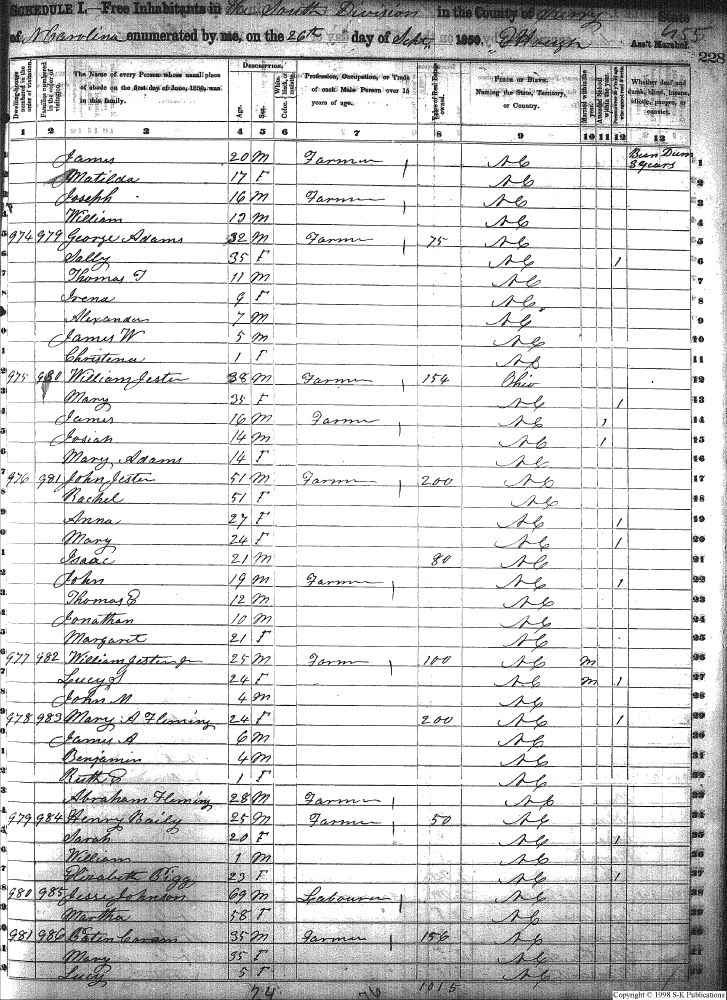 SCHEDULE I.—Free Inhabitants in the South Division in the County of Surry State
of N Carolina enumerated by me, on the 26th day of Sept. 1850. E Hough Ass't Marshal. 455
228
Dwelling-houses numbered in the order of visitation.
Families numbered in the order of visitation.
The Name of every Person whose usual place of abode on the first day of June, 1850, was in this family.
DESCRIPTION.
Age.
Sex.
Color. White, black, or mulatto.
Profession, Occupation, or Trade of each Male Person over 15 years of age.
Value of Real Estate owned.
PLACE OF BIRTH. Naming the State, Territory, or Country.
Married within the year.
Attended School within the year.
Whether deaf and dumb, blind, insane, idiotic, pauper, or convict.
1 2 3 4 5 6 7 8 9 10 11 12 13
James 20 M Farmer 1 NC 1
3 years
Matilda 17 F NC 2
Joseph 16 M Farmer 1 NC 3
William 13 M NC 4
974 979 George Adams 32 M Farmer 1 75 NC 5
Sally 35 F NC 1 6
Thomas T 11 M NC 7
Irena 9 F NC 8
Alexander 7 M NC 9
James W 5 M NC 10
Christena 1 F NC 11
975 980 William Jester 38 M Farmer 1 154 Ohio 12
Mary 35 F NC 1 13
James 16 M Farmer 1 NC 1 14
Josiah 14 M NC 1 15
Mary Adams 14 F NC 16
976 981 John Jester 51 M Farmer 1 200 NC 17
Rachel 51 F NC 18
Anna 27 F NC 1 19
Mary 24 F NC 1 20
Isaac 21 M 80 NC 21
John 19 M Farmer 1 NC 1 22
Thomas E 12 M NC 23
Jonathan 10 M NC 24
Margaret 21 F NC 25
977 982 William Jester Jr 25 M Farm 1 100 NC M 26
Lucy S 24 F NC M 1 27
John M 4 M NC 28
978 983 Mary A Fleming 24 F 200 NC 1 29
James A 6 M NC 30
Benjamin 4 M NC 31
Ruth E 1 F NC 32
Abraham Fleming 28 M Farmer 1 NC 33
979 984 Henry Baily 25 M Farmer 1 50 NC 34
Sarah 20 F NC 1 35
William 1 M NC 36
Elizabeth 23 F NC 1 37
980 985 Jesse Johnson 69 M Labourer 1 NC 38
Martha 58 F NC 39
981 986 35 M Farmer 1 156 NC 40
Mary 35 F NC 41
Lucy 5 F NC 42
24 1015
Copyright © 1998 S-K Publications